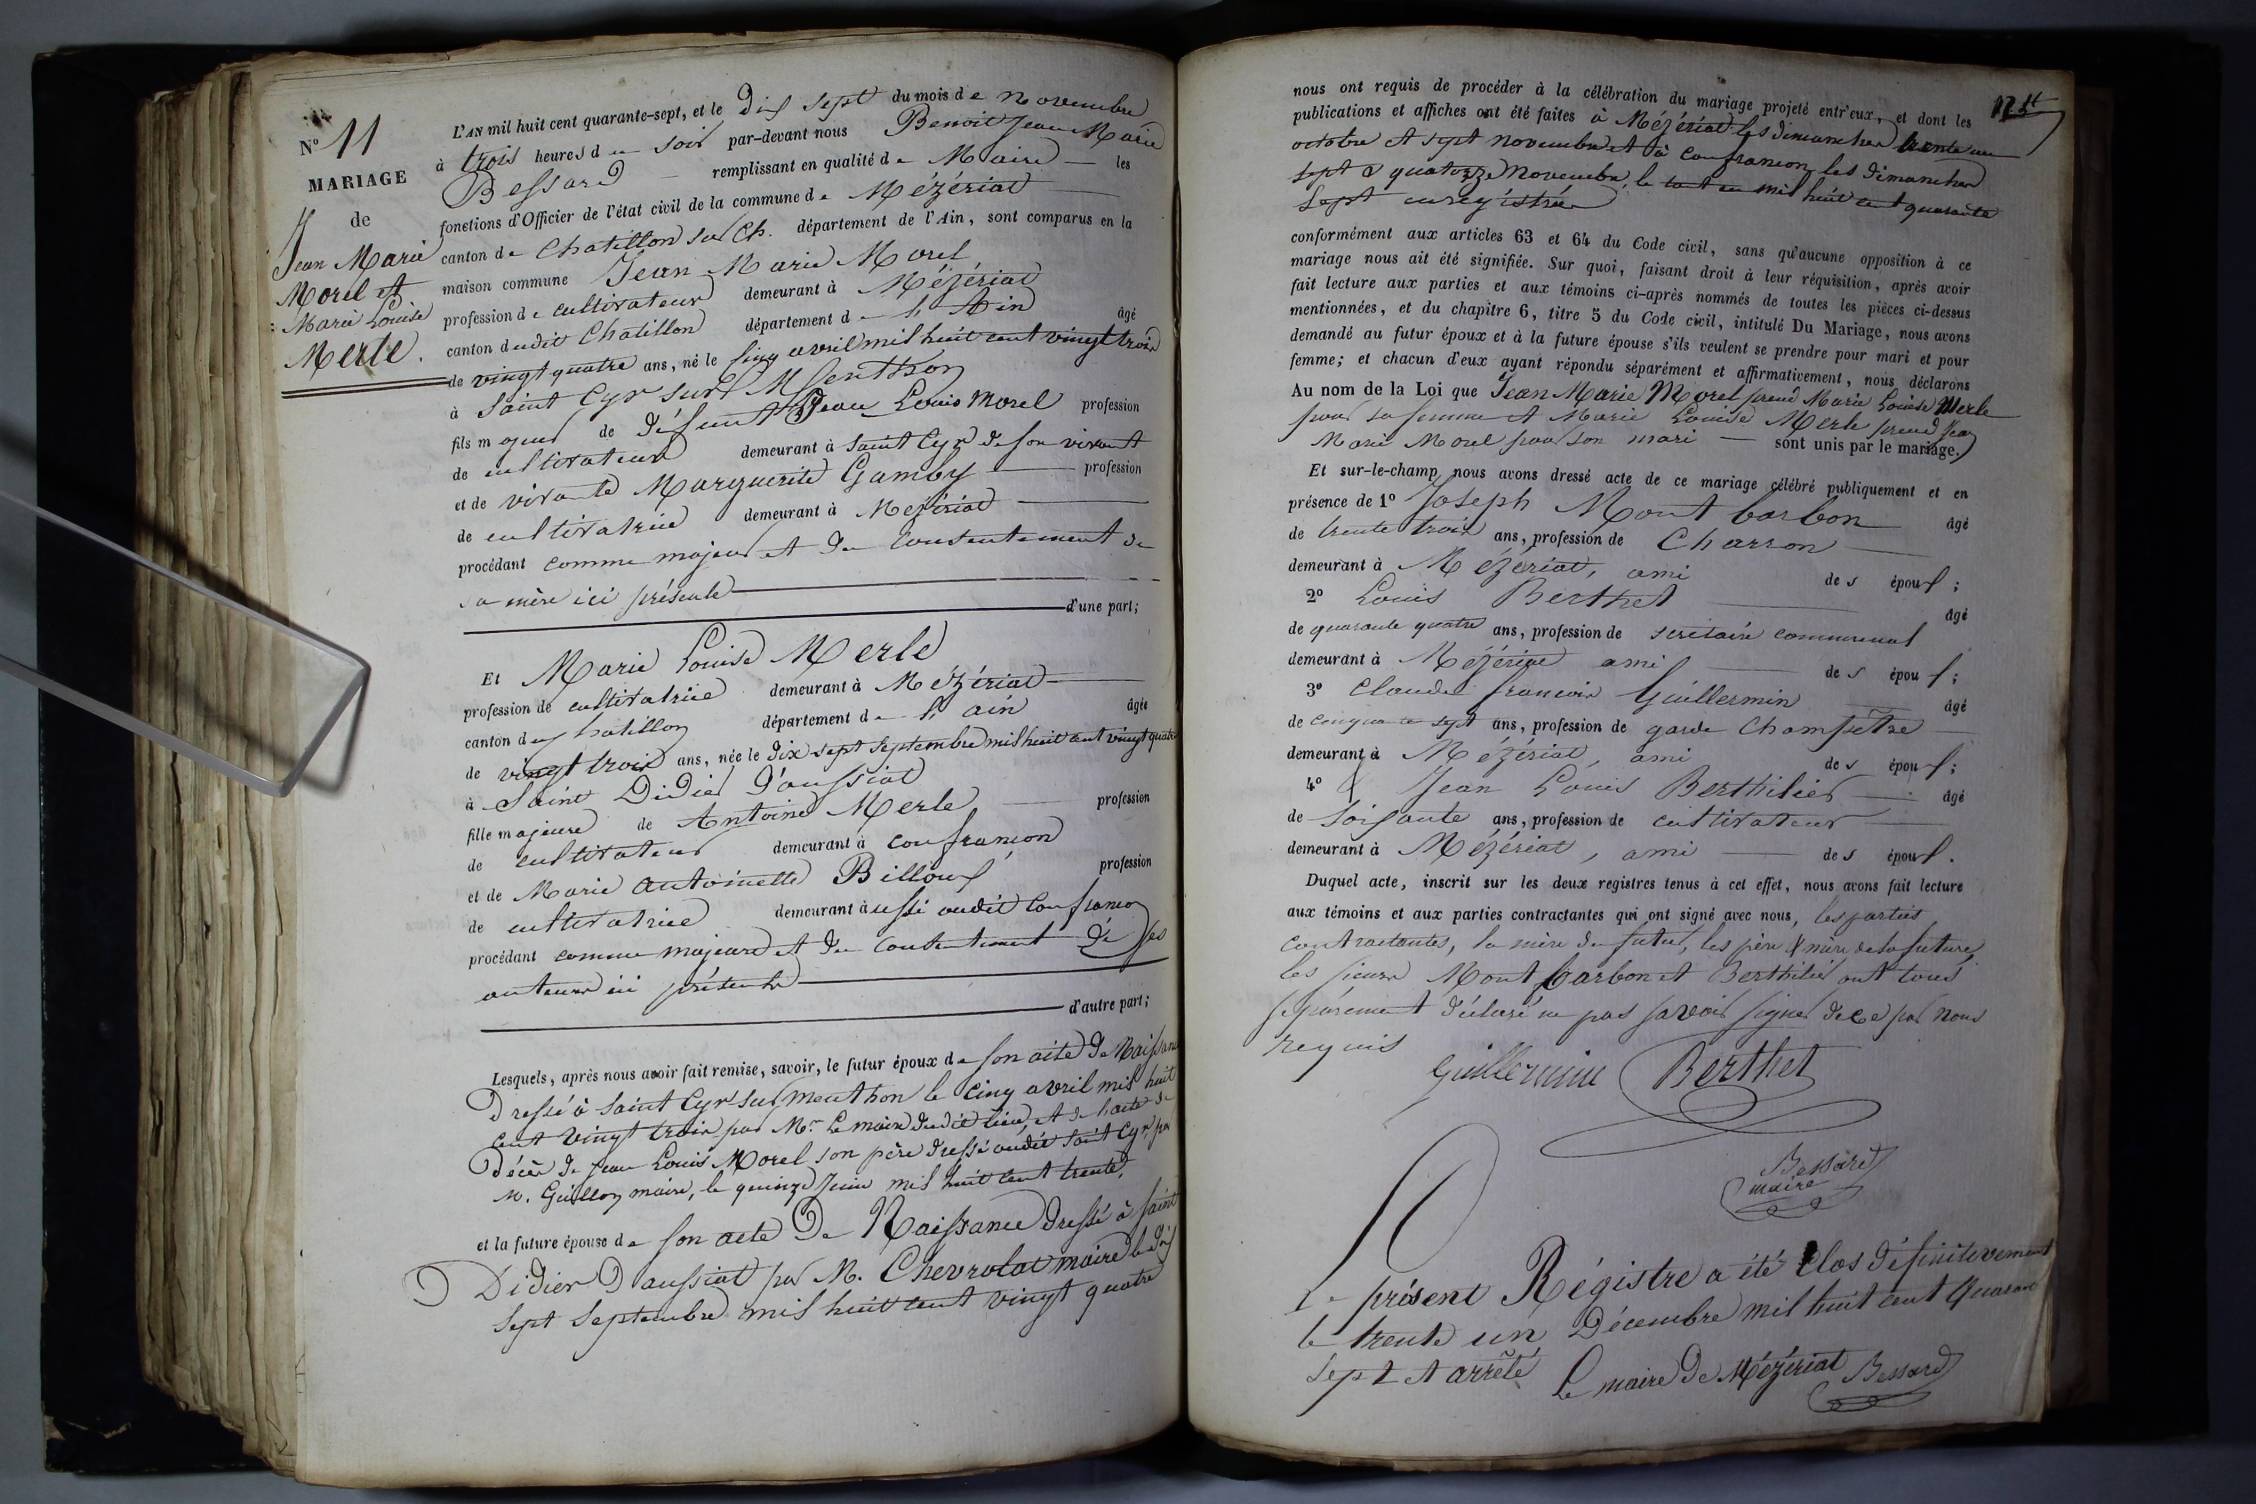 N° 11
MARIAGE
de
Jean Marie
Morel et
Marie Louise
Merle.
L'AN mil huit cent quarante-sept, et le Dix sept du mois de novembre
à trois heures du soir par-devant nous Benoit Jean Marie
Bessard remplissant en qualité de Maire les
fonctions d'Officier de l'état civil de la commune de Mézériat
canton de Chatillon sur Ch. département de l'Ain, sont comparus en la
maison commune Jean Marie Morel
profession de cultivateur demeurant à Mézériat
canton dudit Chatillon département de l'Ain âgé
de vingt quatre ans, né le cinq avril mil huit cent vingt trois
à Saint Cyr sur Menthon
fils majeur de défunt Jean Louis Morel profession
de cultivateur demeurant à Saint Cyr de son vivant
et de vivante Marguerite Gamby profession
de cultivatrice demeurant à Mézériat
procédant comme majeur et du consentement de
sa mère ici présente
d'une part;
Et Marie Louise Merle
profession de cultivatrice demeurant à Mézériat
canton du Chatillon département de l'ain âgée
de vingt trois ans, née le dix sept septembre mil huit cent vingt quatre
à Saint Didier d'aussiat
fille majeure de Antoine Merle profession
de cultivateur demeurant à confrançon
et de Marie antoinette Billoux profession
de cultivatrice demeurant aussi audit Confrançon
procédant comme majeure et du consentement de ses
auteurs ici présents
d'autre part;
Lesquels, après nous avoir fait remise, savoir, le futur époux de son acte de Naissance
Dressé à Saint Cyr sur menthon le cinq avril mil huit
cent vingt trois par Mr Le maire dudit lieu, et de l'acte de
Décès de Jean Louis Morel son père dressé audit Saint Cyr par
M. Guillon maire, le quinze Juin mil huit cent trente,
et la future épouse de son acte De Naissance dressé à Saint
Didier D'aussiat par M. Chevrolat maire le dix
sept septembre mil huit cent vingt quatre
nous ont requis de procéder à la célébration du mariage projeté entr'eux, et dont les
publications et affiches ont été faites à Mézériat les dimanches trente un
octobre et sept novembre et à confrançon les dimanches
sept & quatorze novembre, le tout en mil huit cent quarante
sept enregistrées
conformément aux articles 63 et 64 du Code civil, sans qu'aucune opposition à ce
mariage nous ait été signifiée. Sur quoi, faisant droit à leur réquisition, après avoir
fait lecture aux parties et aux témoins ci-après nommés de toutes les pièces ci-dessus
mentionnées, et du chapitre 6, titre 5 du Code civil, intitulé Du Mariage, nous avons
demandé au futur époux et à la future épouse s'ils veulent se prendre pour mari et pour
femme; et chacun d'eux ayant répondu séparément et affirmativement, nous déclarons
Au nom de la Loi que Jean Marie Morel prend Marie Louise Merle
pour sa femme et Marie Louise Merle prend Jean
Marie Morel pour son mari sont unis par le mariage.
Et sur-le-champ nous avons dressé acte de ce mariage célébré publiquement et en
présence de 1° Joseph Mont barbon âgé
de trente trois ans, profession de Charron
demeurant à Mézériat, ami des époux;
2° Louis Berthet âgé
de quarante quatre ans, profession de secrétaire communal
demeurant à Mézériat ami des époux;
3° Claude françois Guillermin âgé
de cinquante sept ans, profession de garde Champêtre
demeurant à Mézériat, ami des époux;
4° & Jean Louis Berthilier âgé
de soixante ans, profession de cultivateur
demeurant à Mézériat, ami des époux.
Duquel acte, inscrit sur les deux registres tenus à cet effet, nous avons fait lecture
aux témoins et aux parties contractantes qui ont signé avec nous, les parties
contractantes, la mère du futur, les père & mère de la future,
les sieurs Mont barbon et Berthilier ont tous
séparément déclaré ne pas savoir signer de ce par nous
requis
Guillermin Berthet
Bessard
maire
Le présent Régistre a été Clos définitivement
le trente un Décembre mil huit cent Quarante
sept et arrêté Le maire de Mézériat Bessard